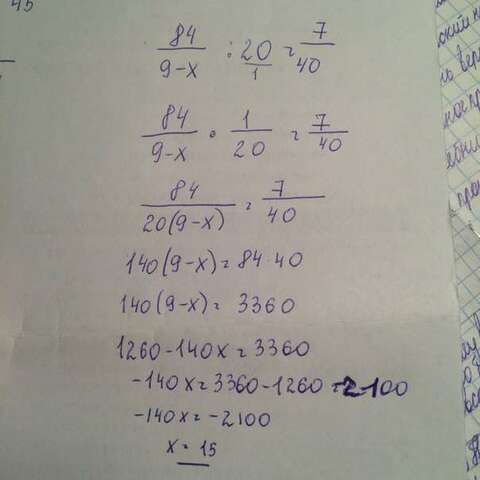 45
84/(9-x) : 20/1 = 7/40
84/(9-x) · 1/20 = 7/40
84/(20(9-x)) = 7/40
140(9-x) = 84·40
140(9-x) = 3360
1260-140x = 3360
-140x = 3360-1260 = 2100
-140x = -2100
x = 15